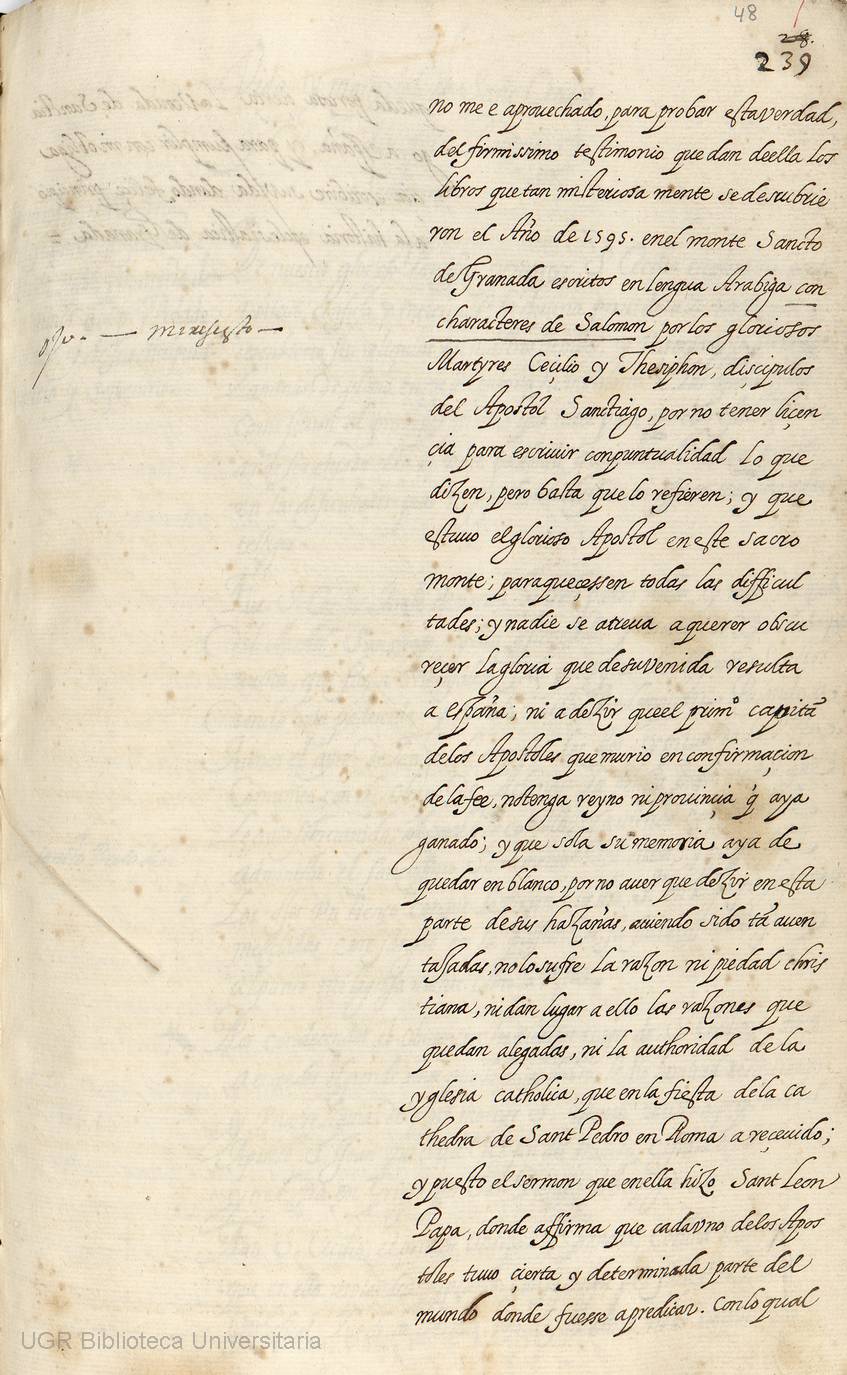 48
28.
239
no me e aprouechado, para probar esta verdad,
del firmissimo testimonio que dan de ella los
libros que tan misteriosa mente se descubrie
ron el Año de 1595. en el monte Sancto
de Granada escritos en lengua Arabiga con
characteres de Salomon por los gloriosos
Martyres Ceçilio y Thesiphon, disçipulos
del Apostol Sanctiago, por no tener liçen
çia para escriuir con puntualidad lo que
dizen, pero basta que lo refieren; y que
estuuo el glorioso Apostol en este sacro
monte; para que çessen todas las difficul
tades; y nadie se atreua a querer obscu
reçer la gloria que de su venida resulta
a España; ni a dezir que el primº capitã
de los Apostoles que murio en confirmaçion
de la fee, no tenga reyno ni prouinçia q̃ aya
ganado; y que sola su memoria, aya de
quedar en blanco, por no auer que dezir en esta
parte de sus hazañas, auiendo sido tã auen
tajadas, no lo sufre la razon ni piedad chris
tiana, ni dan lugar a ello las razones que
quedan alegadas, ni la authoridad de la
yglesia catholica, que en la fiesta de la ca
thedra de Sant Pedro en Roma a reçeuido;
y puesto el sermon que en ella hizo Sant Leon
Papa, donde affirma que cada vno de los Apos
toles tuuo çierta y determinada parte del
mundo donde fuesse a predicar. Con lo qual
UGR Biblioteca Universitaria